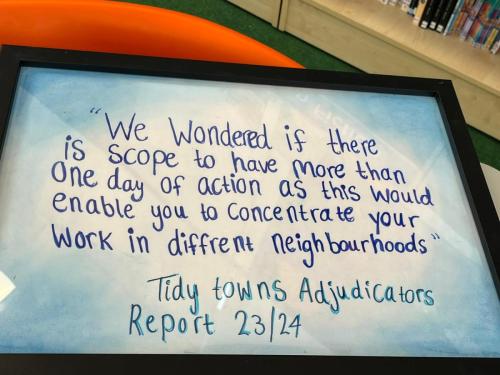 "We Wondered if there
is scope to have more than
One day of action as this would
enable you to concentrate your
work in diffrent neighbourhoods"
Tidy towns Adjudicators
Report 23/24